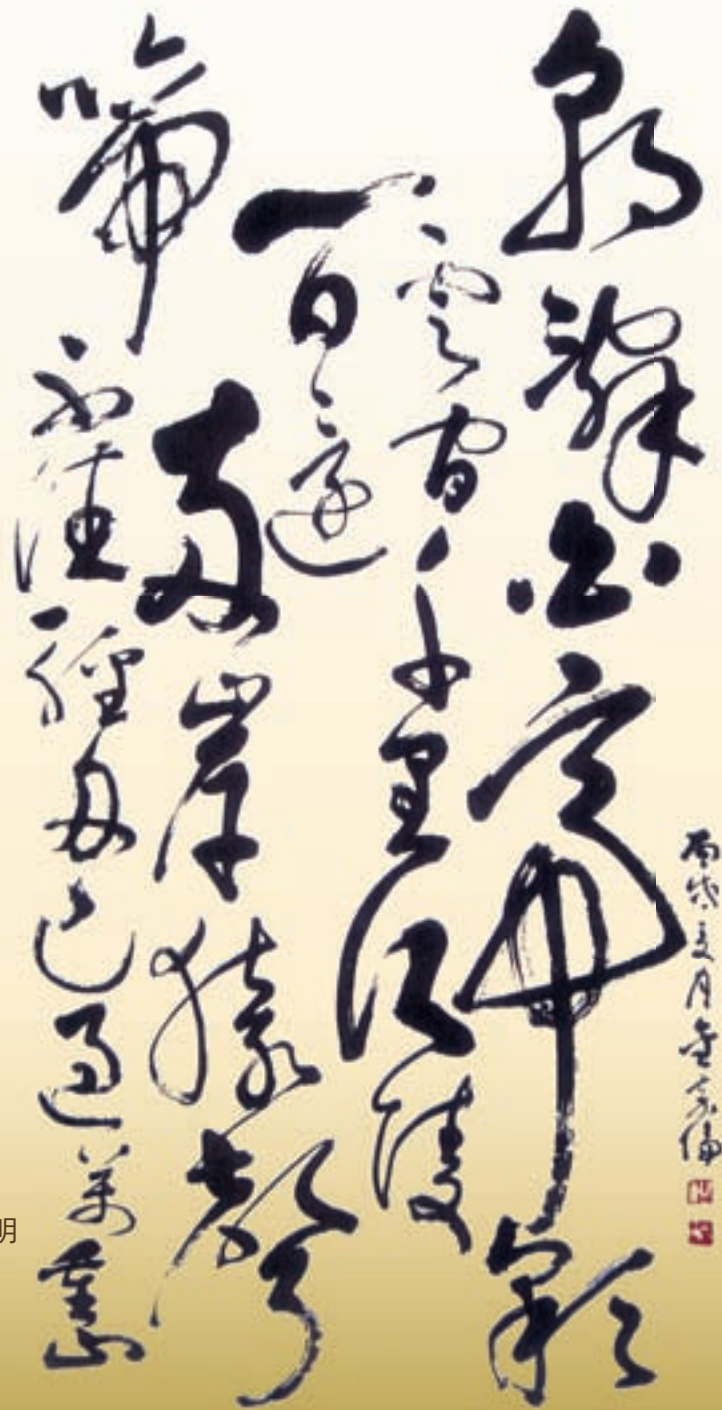 朝辭白帝彩
雲間千里江陵
一日還
兩岸猿聲
啼不住輕舟已過萬重山
丙戌夏月金嘉倫
明